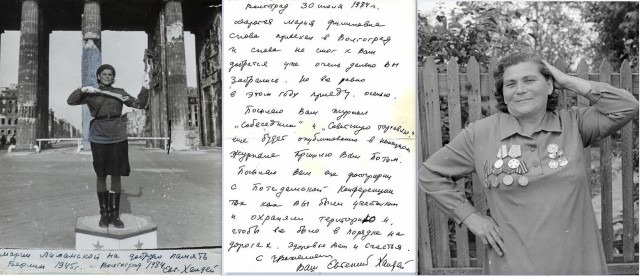 Марии Лиманской на добрую память
Берлин 1945г. – Волгоград 1984 Евг. Халдей
Волгоград 30 июля 1984г.
Дорогая Мария Филипповна
Снова приехал в Волгоград
и снова не смог к Вам
добраться уж очень далеко Вы
забрались. Но все равно
в этом году приеду. осенью.
Посылаю Вам журнал
"Собеседник" и "Советскую торговлю",
еще будет опубликовано в
журнале Пришлю Вам потом.
Посылаю Вам еще фотографии
с Потсдамской Конференции
так как Вы были участником
и охраняли территорию и,
чтобы все было в порядке на
дорогах. Здоровья Вам и счастья.
С уважением
Ваш Евгений Халдей